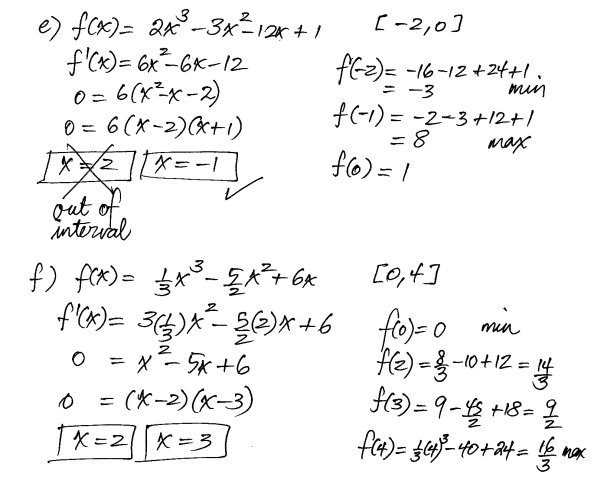 e) f(x) = 2x³ - 3x² - 12x + 1 [-2,0]
f'(x) = 6x² - 6x - 12
0 = 6(x² - x - 2)
0 = 6(x-2)(x+1)
x = 2 x = -1 ✓
out of
interval
f(-2) = -16 - 12 + 24 + 1
= -3 min
f(-1) = -2 - 3 + 12 + 1
= 8 max
f(0) = 1
f) f(x) = 1/3 x³ - 5/2 x² + 6x [0,4]
f'(x) = 3(1/3)x² - 5/2(2)x + 6
0 = x² - 5x + 6
0 = (x-2)(x-3)
x = 2 x = 3
f(0) = 0 min
f(2) = 8/3 - 10 + 12 = 14/3
f(3) = 9 - 45/2 + 18 = 9/2
f(4) = 1/3(4)³ - 40 + 24 = 16/3 max